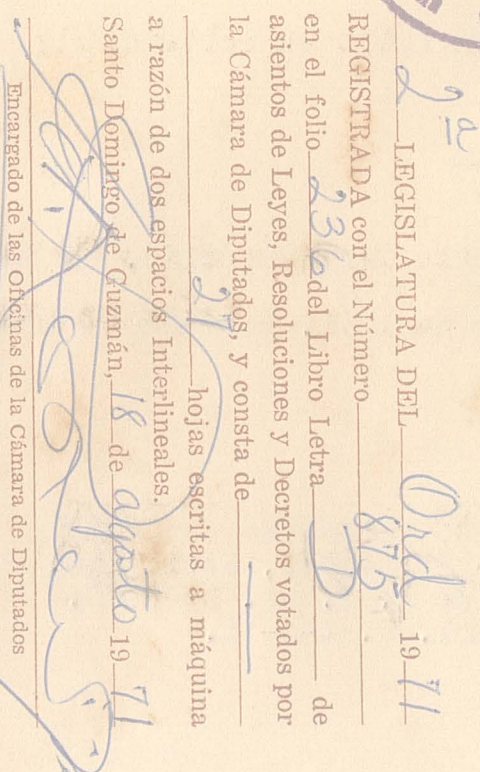 2ª LEGISLATURA DEL Ord 1971
REGISTRADA con el Número 875
en el folio 236 del Libro Letra D de
asientos de Leyes, Resoluciones y Decretos votados por
la Cámara de Diputados, y consta de
27 hojas escritas a máquina
a razón de dos espacios Interlineales.
Santo Domingo de Guzmán, 18 de agosto 1971
Encargado de las Oficinas de la Cámara de Diputados